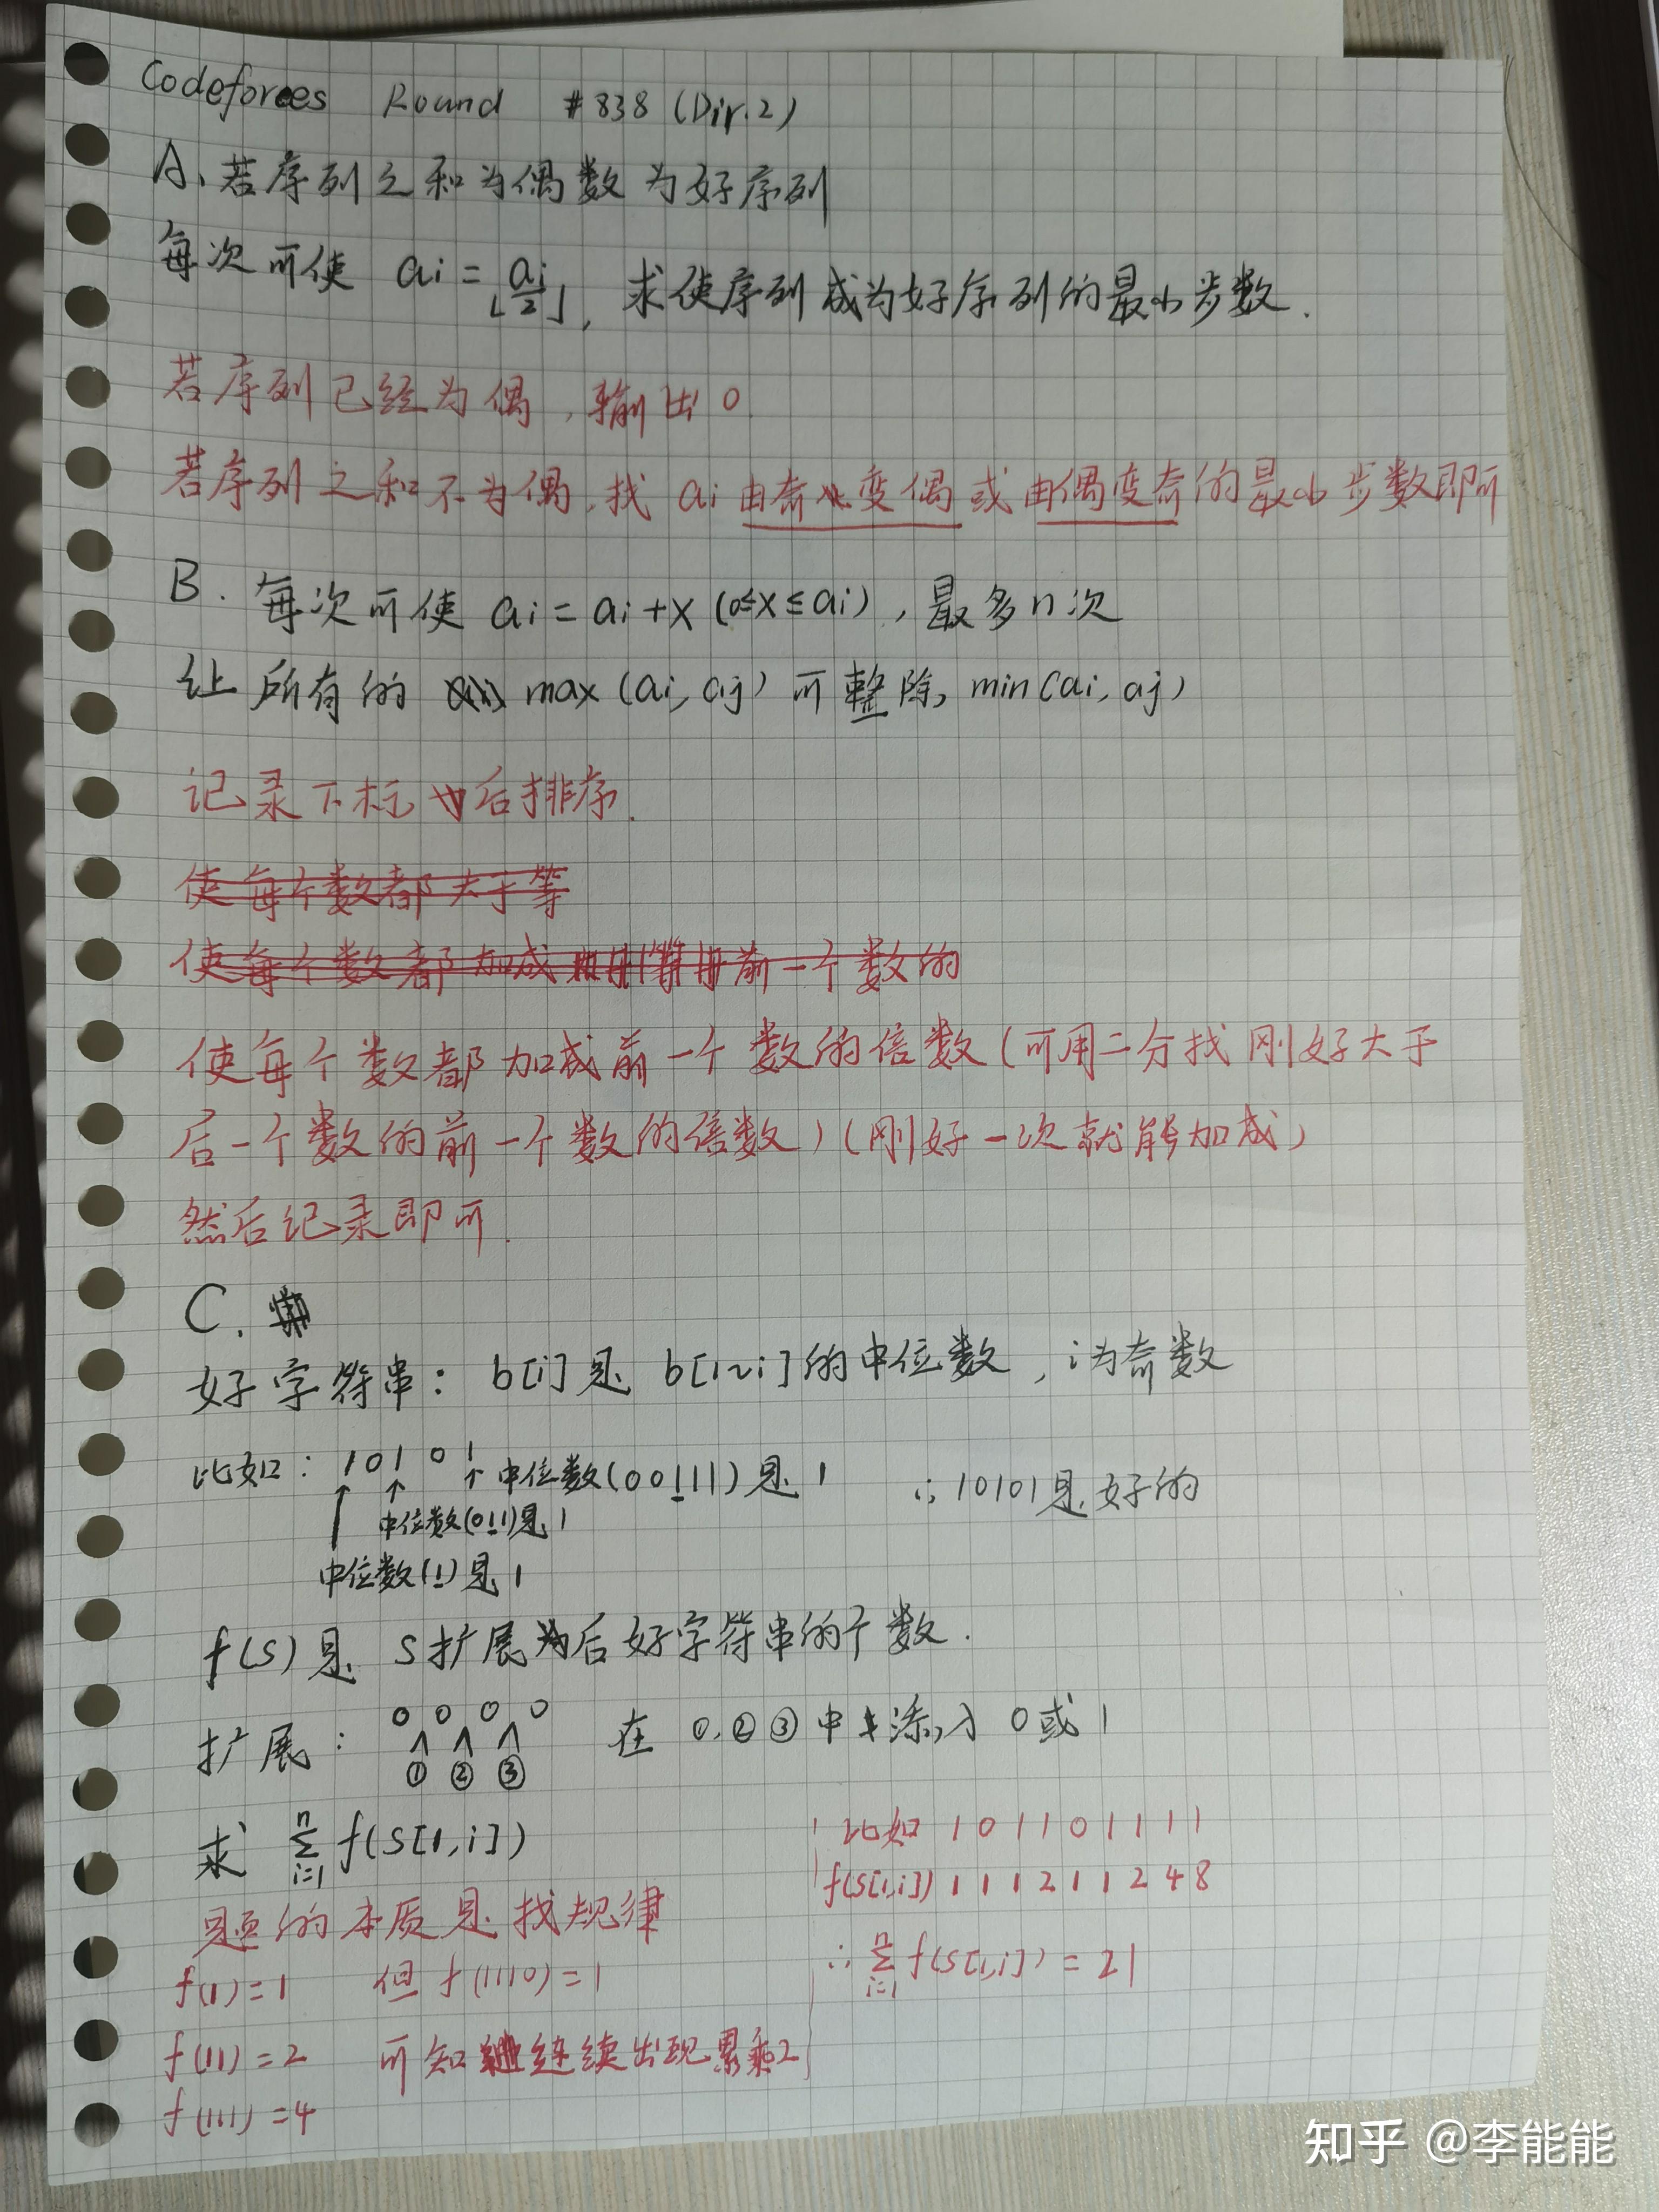 Codeforces Round #838 (Div.2)
A、若序列之和为偶数为好序列
每次可使 ai = ⌊ai/2⌋, 求使序列成为好序列的最小步数.
若序列已经为偶,输出0.
若序列之和不为偶,找 ai 由奇变偶或由偶变奇的最小步数即可
B. 每次可使 ai = ai + x (0≤x≤ai), 最多n次
让所有的 max(ai, aj) 可整除 min(ai, aj)
记录下标后排序.
使每个数都大于等
使每个数都加成 前一个数的
使每个数都加成前一个数的倍数(可用二分找刚好大于
后一个数的前一个数的倍数)(刚好一次就能加成)
然后记录即可.
C.
好字符串: b[i]是 b[1~i]的中位数, i为奇数
比如: 10101 中位数(00111)是1 ∴10101是好的
中位数(011)是1
中位数(1)是1
f(S)是 S扩展后好字符串的个数.
扩展: 0 0 0 0 在 ①,②③中添入0或1
① ② ③
求 ∑ⁿᵢ₌₁ f(S[1,i])
比如 1 0 1 1 0 1 1 1 1
f(S[1,i]) 1 1 1 2 1 1 2 4 8
∴ ∑ⁿᵢ₌₁ f(S[1,i]) = 21
题的本质是找规律
f(1)=1 但 f(1110)=1
f(11)=2 可知连续出现累乘2
f(111)=4
知乎 @李能能